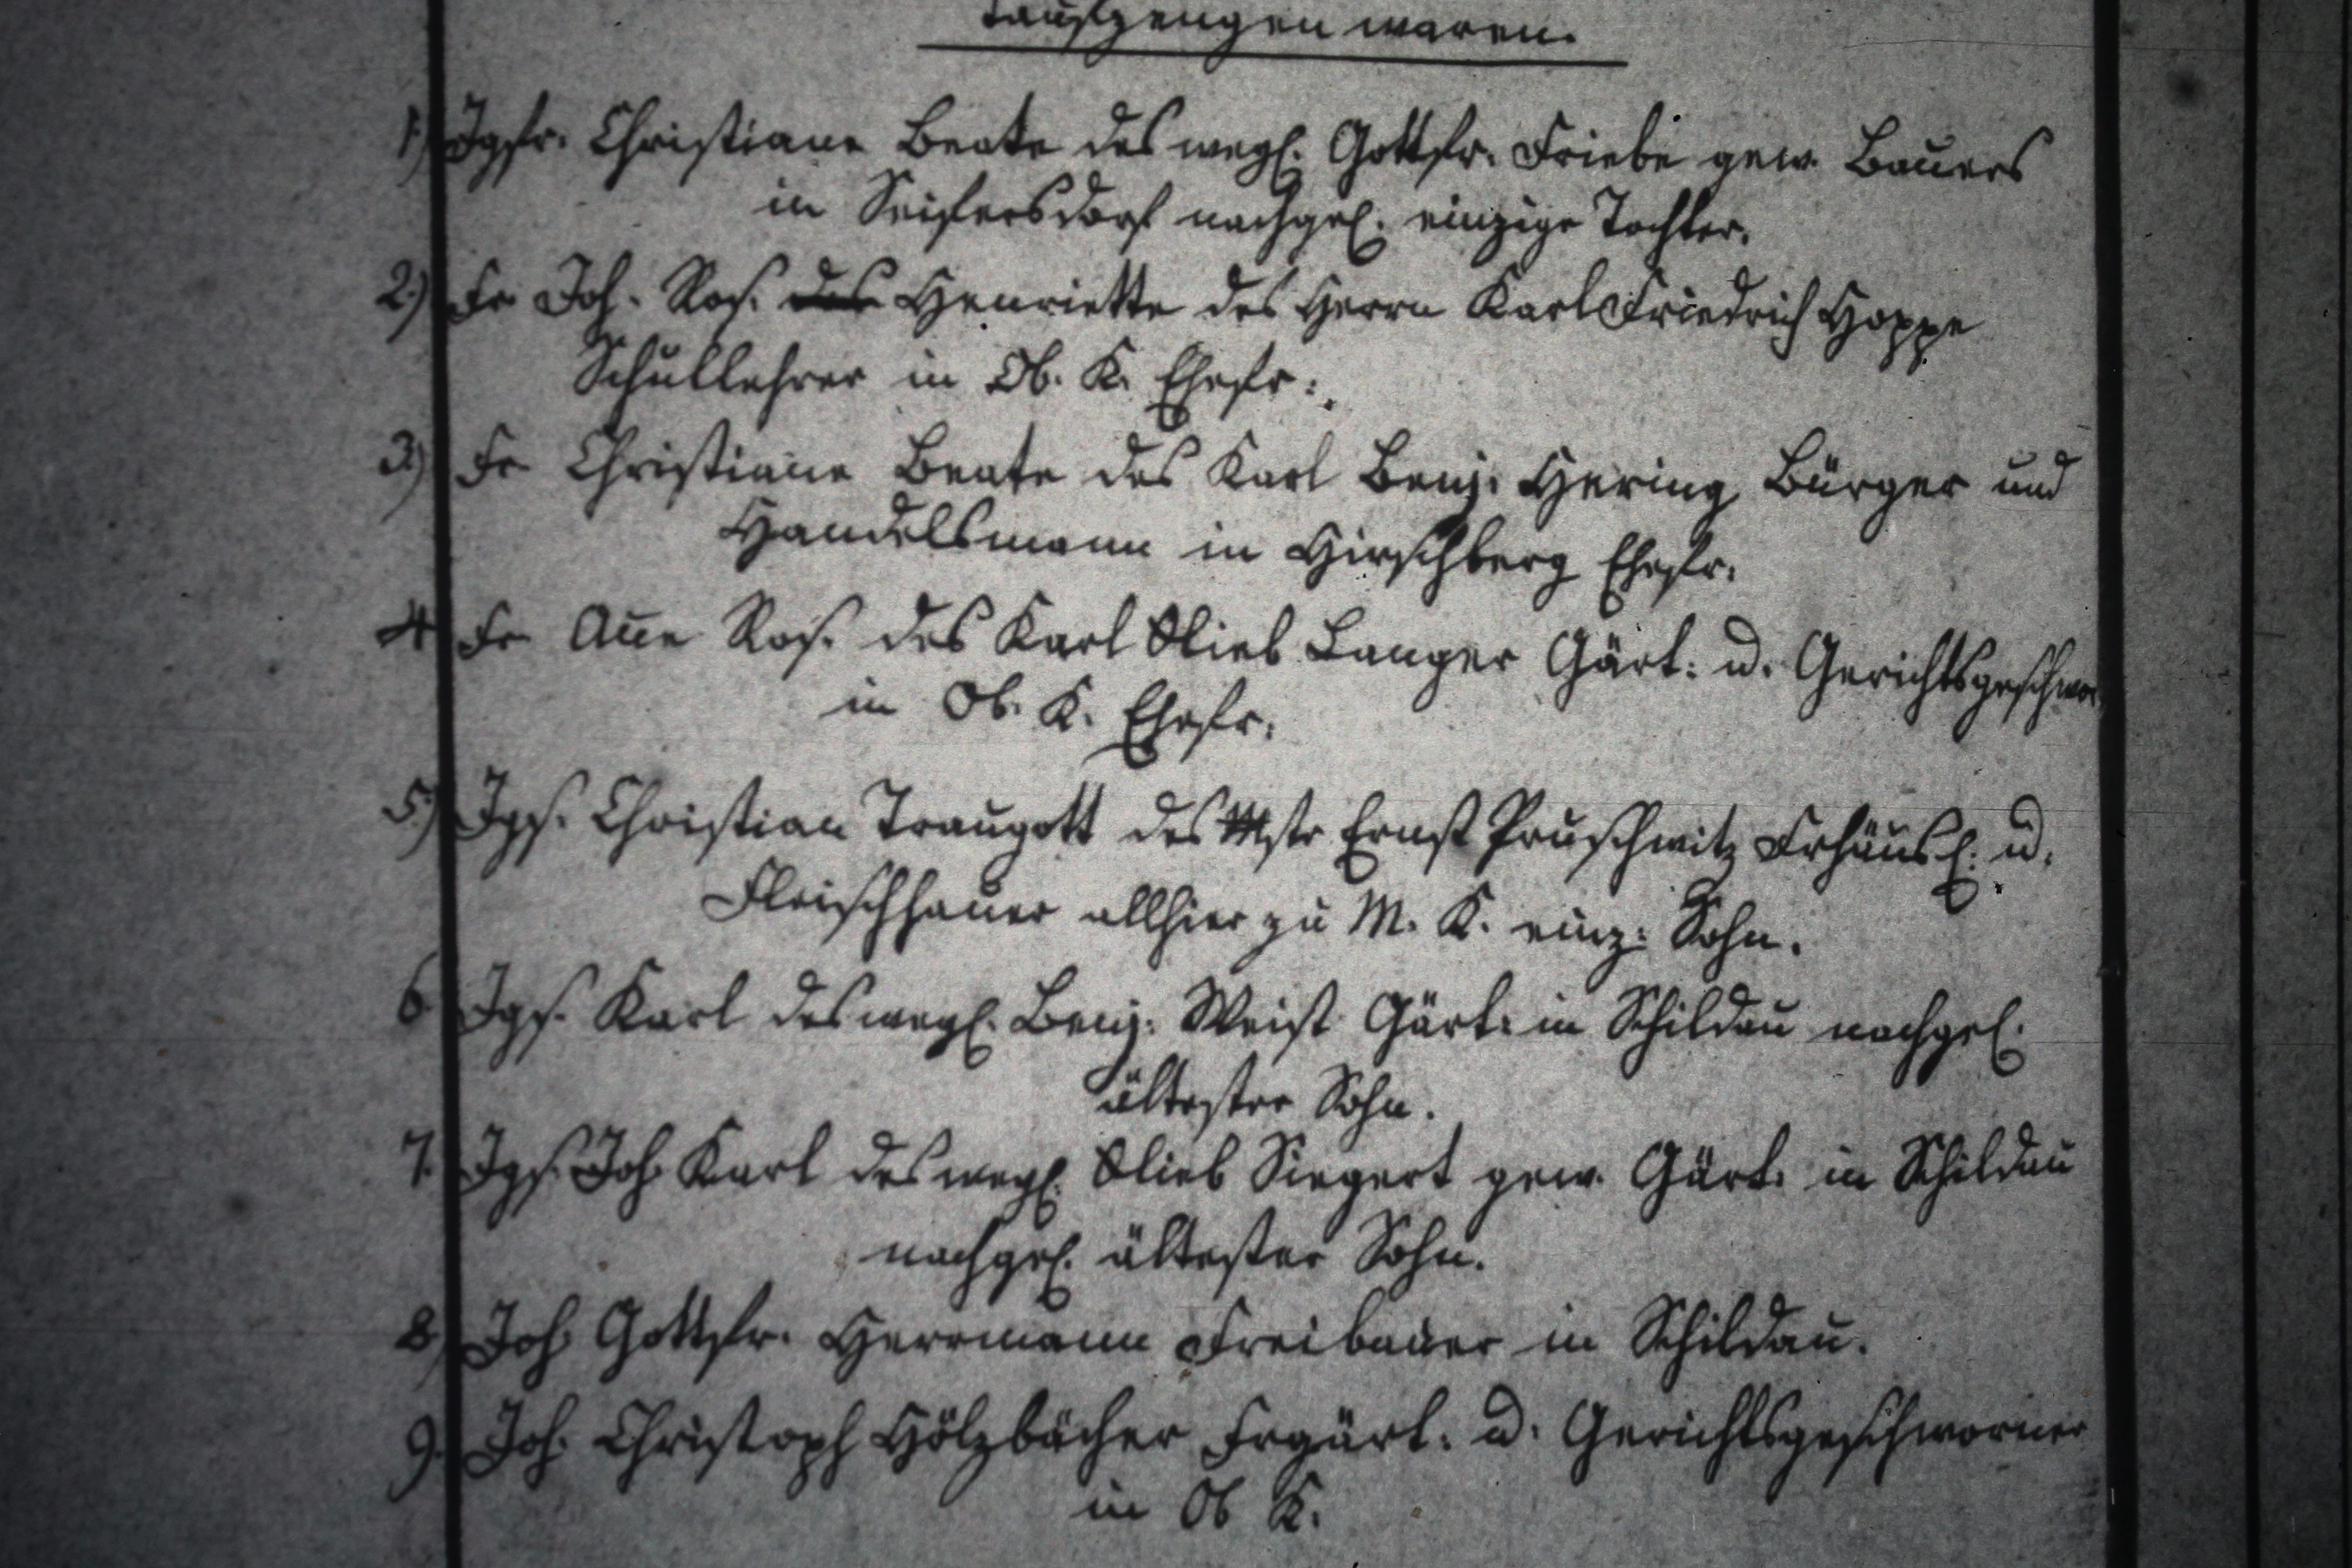 Taufzeugen waren.
1.) Jgfr. Christiane Beate des wegl. Gottfr. Friebe gew. Bauers
in Seifersdorf nachgel. einzige Tochter.
2.) Fr Joh. Ros. des Henriette des Herrn Karl Friedrich Hoppe
Schullehrer in Ob. K. Ehefr:.
3.) Fr Christiane Beate des Karl Benj. Hering Bürger und
Handelsmann in Hirschberg Ehefr.
4 Fr Anne Ros. des Karl Glieb Langer Gärt: u. Gerichtsgeschwor
in Ob. K. Ehefr.
5.) Jgs. Christian Traugott des Mstr Ernst Pruschwitz Frhäusl. u.
Fleischhauer allhier zu M. K. einz: Sohn.
6 Jgs. Karl des wegl. Benj. Weist Gärt: in Schildau nachgel.
ältester Sohn.
7. Jgs. Joh Karl des wegl. Glieb Siegert gew. Gärt. in Schildau
nachgel. ältester Sohn.
8) Joh Gottfr. Herrmann Freibauer in Schildau.
9. Joh. Christoph Hölzbächer Frgärt. u. Gerichtsgeschworner
in Ob K.